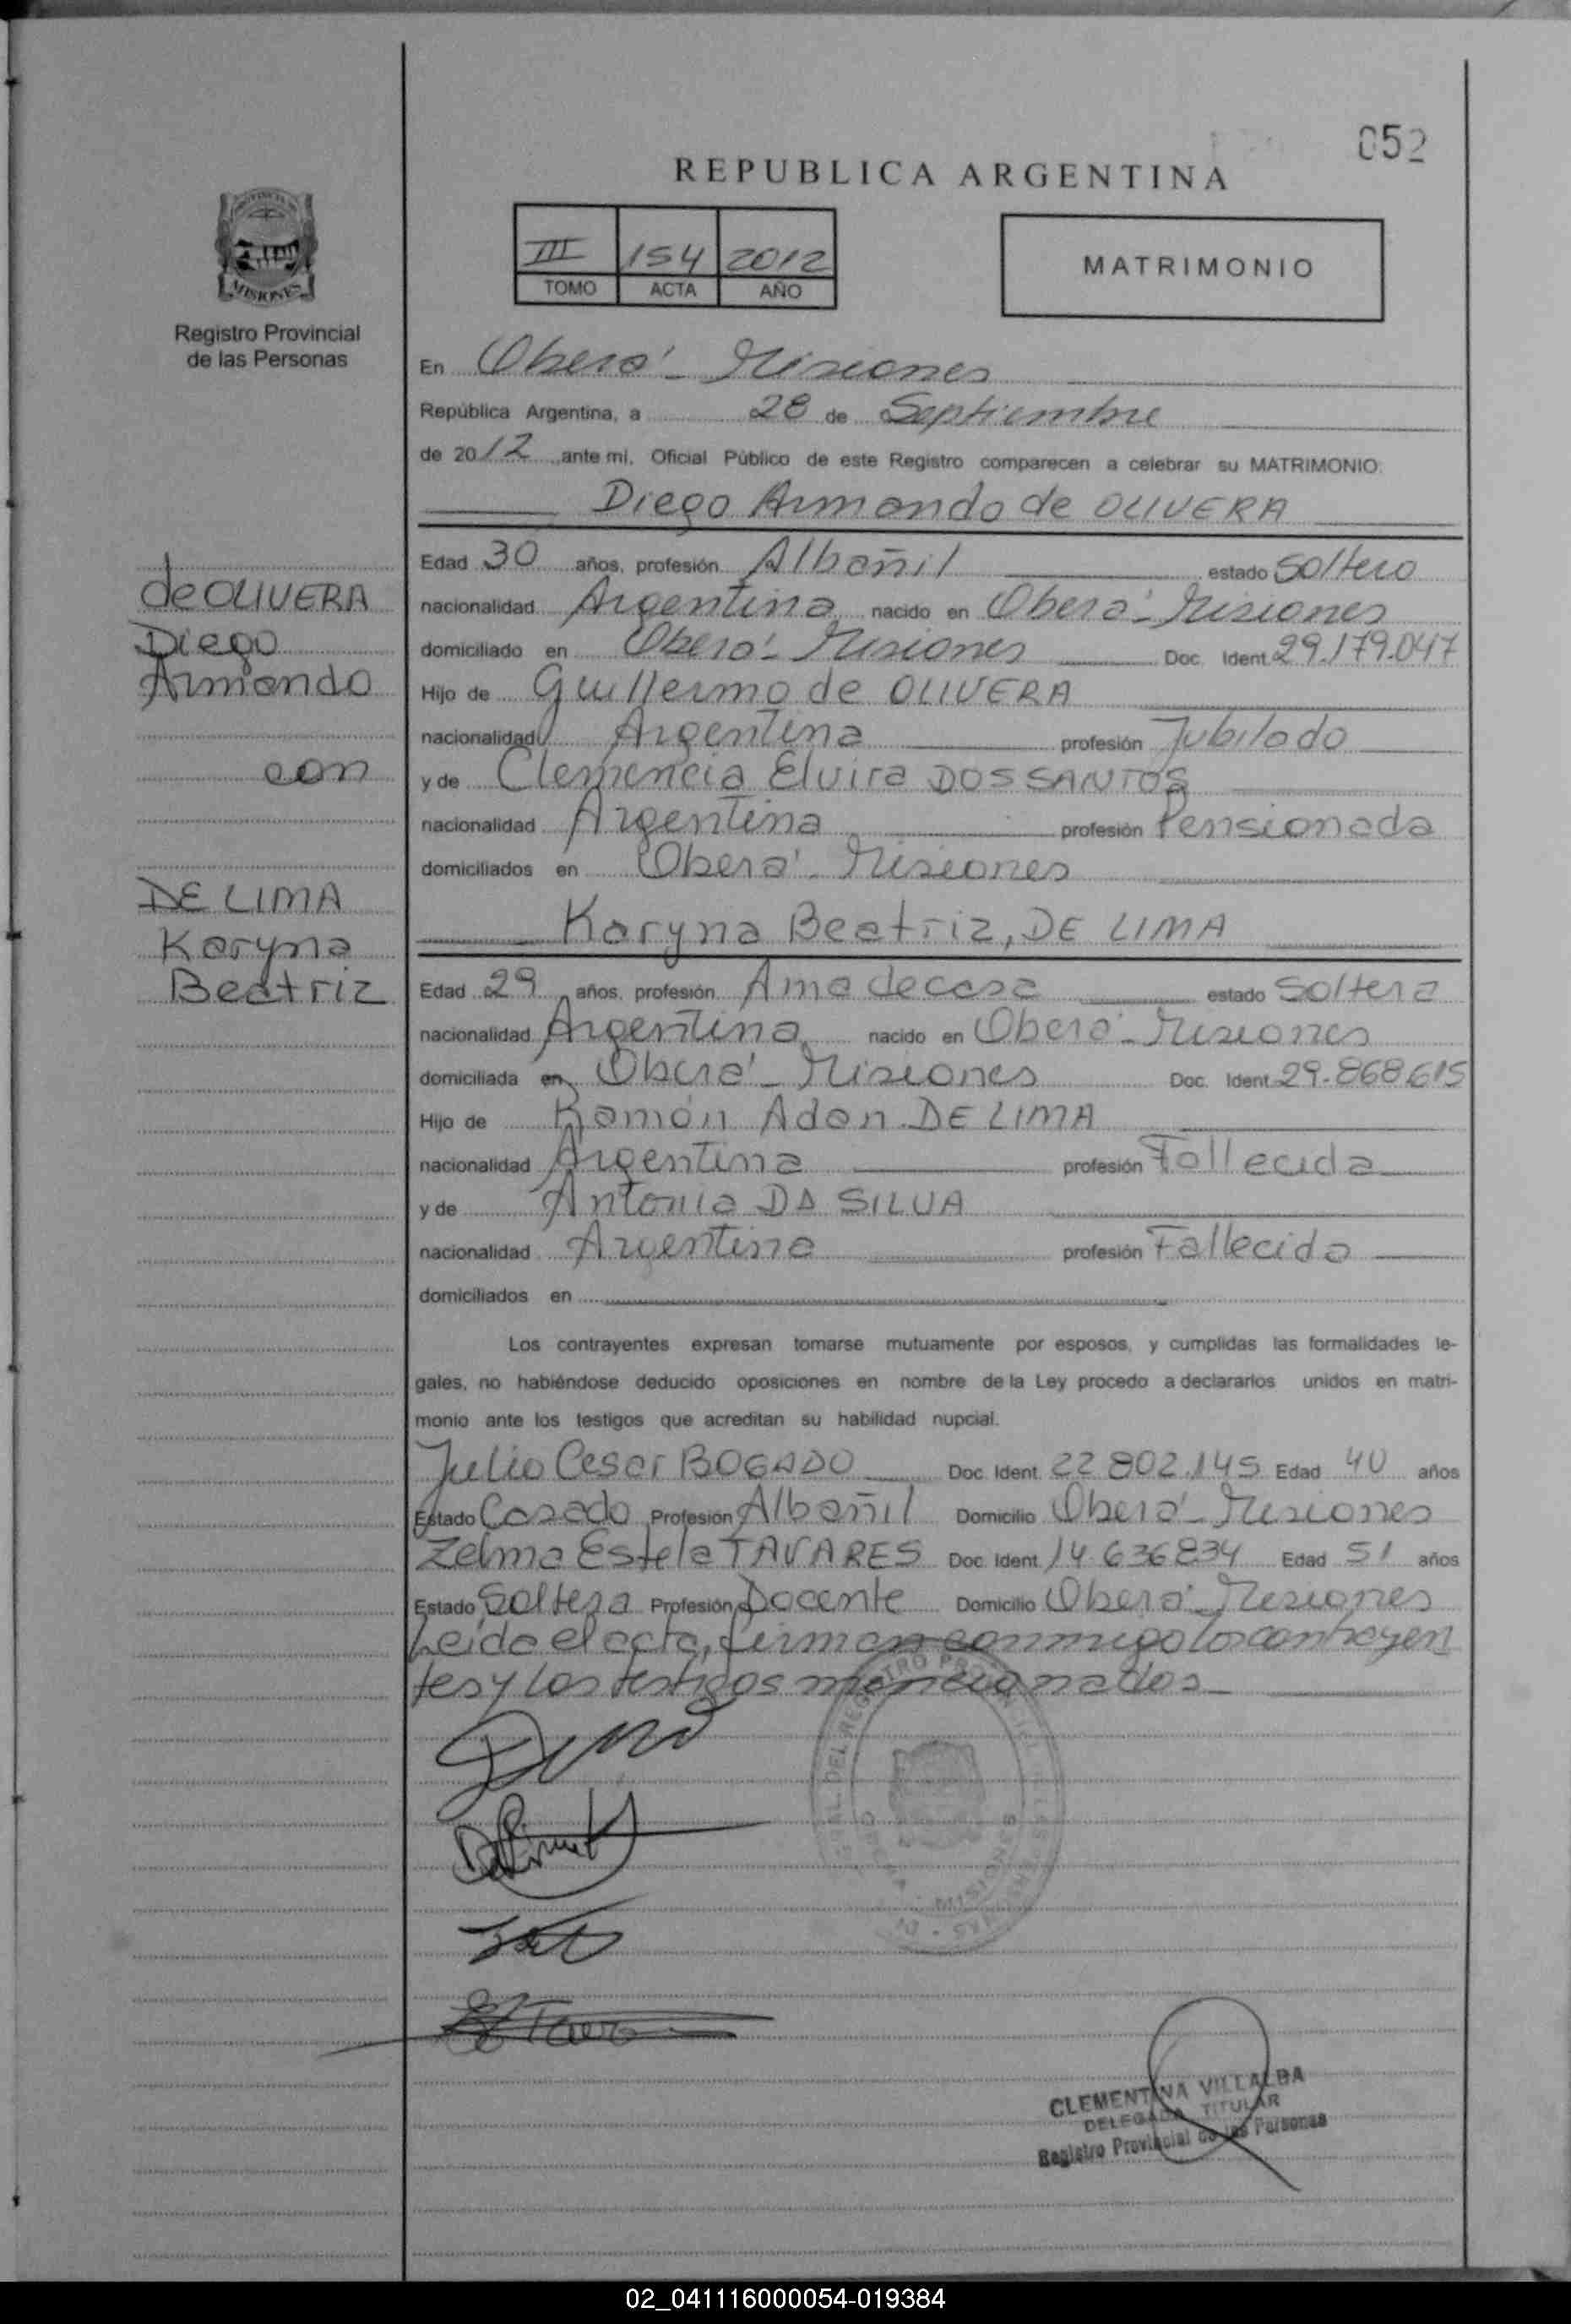 052
REPUBLICA ARGENTINA
III 154 2012
TOMO ACTA AÑO
MATRIMONIO
MISIONES
Registro Provincial
de las Personas
En Oberá - Misiones
República Argentina, a 28 de Septiembre
de 2012 ante mi, Oficial Público de este Registro comparecen a celebrar su MATRIMONIO:
Diego Armando de OLIVERA
Edad 30 años, profesión Albañil estado Soltero
nacionalidad Argentina nacido en Oberá - Misiones
domiciliado en Oberá - Misiones Doc. Ident. 29.179.047
Hijo de Guillermo de OLIVERA
nacionalidad Argentina profesión Jubilado
y de Clemencia Elvira DOS SANTOS
nacionalidad Argentina profesión Pensionada
domiciliados en Oberá - Misiones
de OLIVERA
Diego
Armando
con
DE LIMA
Karyna
Beatriz
Karyna Beatriz, DE LIMA
Edad 29 años, profesión Ama de casa estado Soltera
nacionalidad Argentina nacido en Oberá - Misiones
domiciliada en Oberá - Misiones Doc. Ident. 29.868.615
Hijo de Ramón Adan DE LIMA
nacionalidad Argentina profesión Fallecida
y de Antonia DA SILVA
nacionalidad Argentina profesión Fallecida
domiciliados en
Los contrayentes expresan tomarse mutuamente por esposos, y cumplidas las formalidades le-
gales, no habiéndose deducido oposiciones en nombre de la Ley procedo a declararlos unidos en matri-
monio ante los testigos que acreditan su habilidad nupcial.
Julio Cesar BOGADO Doc. Ident. 22.802.145 Edad 40 años
Estado Casado Profesión Albañil Domicilio Oberá - Misiones
Zelma Estela TAVARES Doc. Ident. 14.636.834 Edad 51 años
Estado Soltera Profesión Docente Domicilio Oberá - Misiones
Leída el acta, firman conmigo los contrayen
tes y los testigos mencionados
CLEMENTINA VILLALBA
DELEGADA TITULAR
Registro Provincial de las Personas
02_041116000054-019384